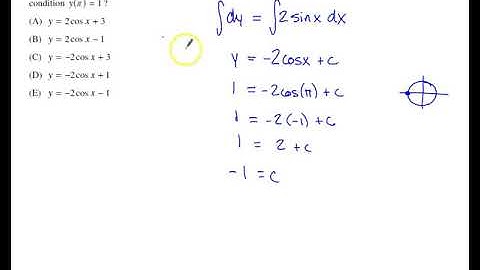 condition y(π) = 1 ?
(A) y = 2cos x + 3
(B) y = 2cos x − 1
(C) y = −2cos x + 3
(D) y = −2cos x + 1
(E) y = −2cos x − 1
∫dy = ∫2 sinx dx
y = -2cosx + c
1 = -2cos(π) + c
1 = -2(-1) + c
1 = 2 + c
-1 = c